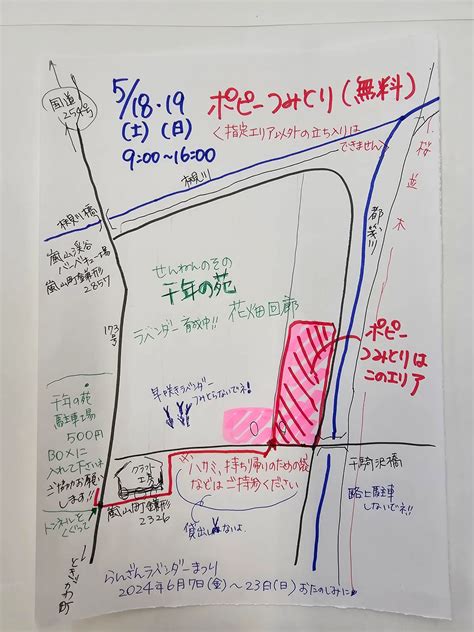 5/18・19
(土)(日)
9:00～16:00
ポピーつみとり(無料)
<指定エリア以外の立ち入りは
できません>
国道
254号
槻川
槻川橋
嵐山渓谷
バーベキュー場
嵐山町鎌形
2857
桜並木
都幾川
せんねんのその
千年の苑
ラベンダー育成中!! 花畑回廊
173号
ポピー
つみとりは
このエリア
早咲きラベンダー
つみとらないでネ!
千年の苑
駐車場
500円
BOXに
入れて下さいネ
ご協力お願い
します!!
トンネルを
くぐって
クラフト
工房
嵐山町鎌形
2326
※ハサミ、持ち帰りのための袋
などはご持参ください
貸出しないよ
千騎沢橋
路上駐車
しないでネ!!
ときがわ町
らんざんラベンダーまつり
2024年6月7日(金)～23日(日)おたのしみに